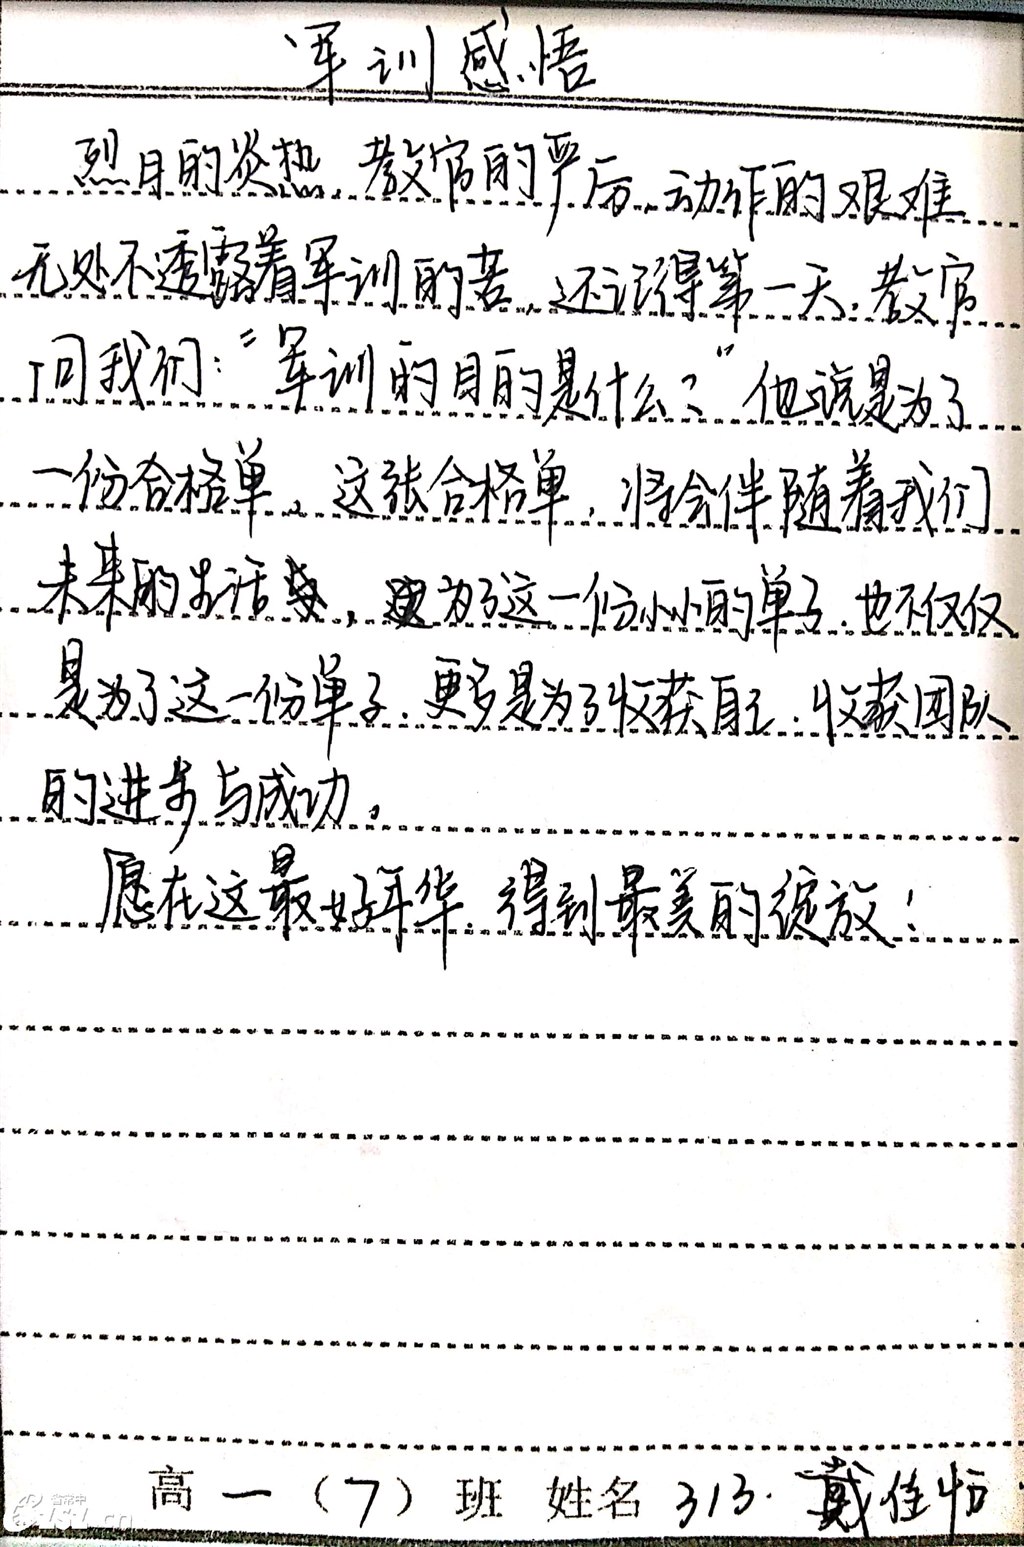 军训感悟
烈日的炎热,教官的严厉,动作的艰难
无处不透露着军训的苦,还记得第一天,教官
问我们:“军训的目的是什么?”他说是为了
一份合格单。这张合格单,将会伴随着我们
未来的生活,为了这一份小小的单子,也不仅仅
是为了这一份单子,更多是为了收获自己,收获团队
的进步与成功。
愿在这最好年华,得到最美的绽放!
高一(7)班 姓名 313. 戴佳
省常中
.cn